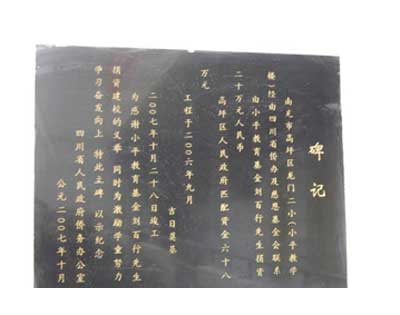 碑记
南充市高坪区龙门二小(小平教学
楼)经由四川省侨办及慈恩基金会联系
由小平教育基金刘百行先生捐资
二十万元人民币
高坪区人民政府匹配资金六十八
万元
工程于二00六年九月
吉日奠基
二00七年十月二十八日竣工
为感谢小平教育基金刘百行先生
捐资建校的义举 同时为激励学童努力
学习奋发向上 特此立碑 以示纪念
四川省人民政府侨务办公室
公元二00七年十月